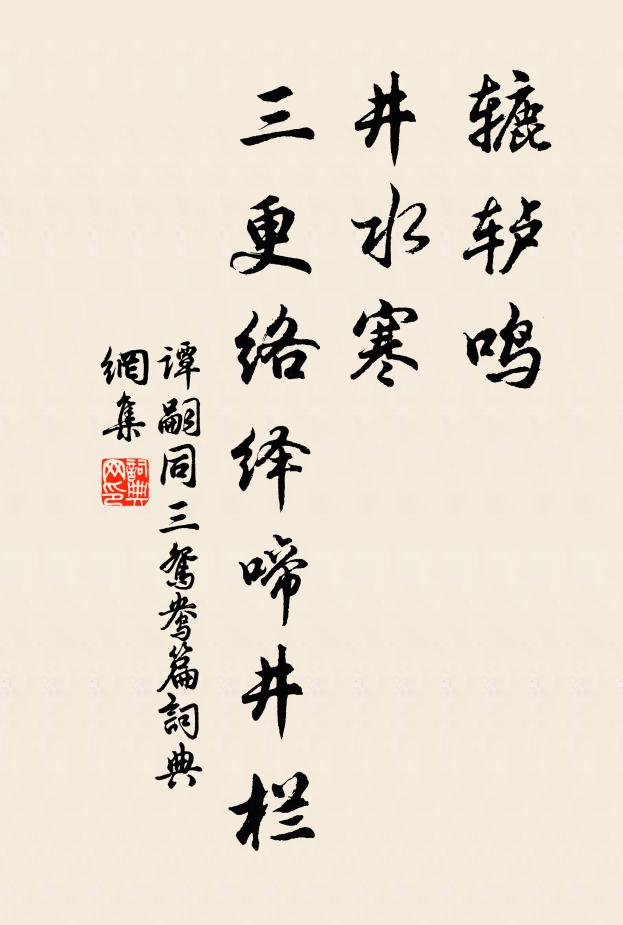 辘轳鸣
井水寒
三更络绎啼井栏
谭嗣同三鸳鸯篇詞典
網集
詞典
网印